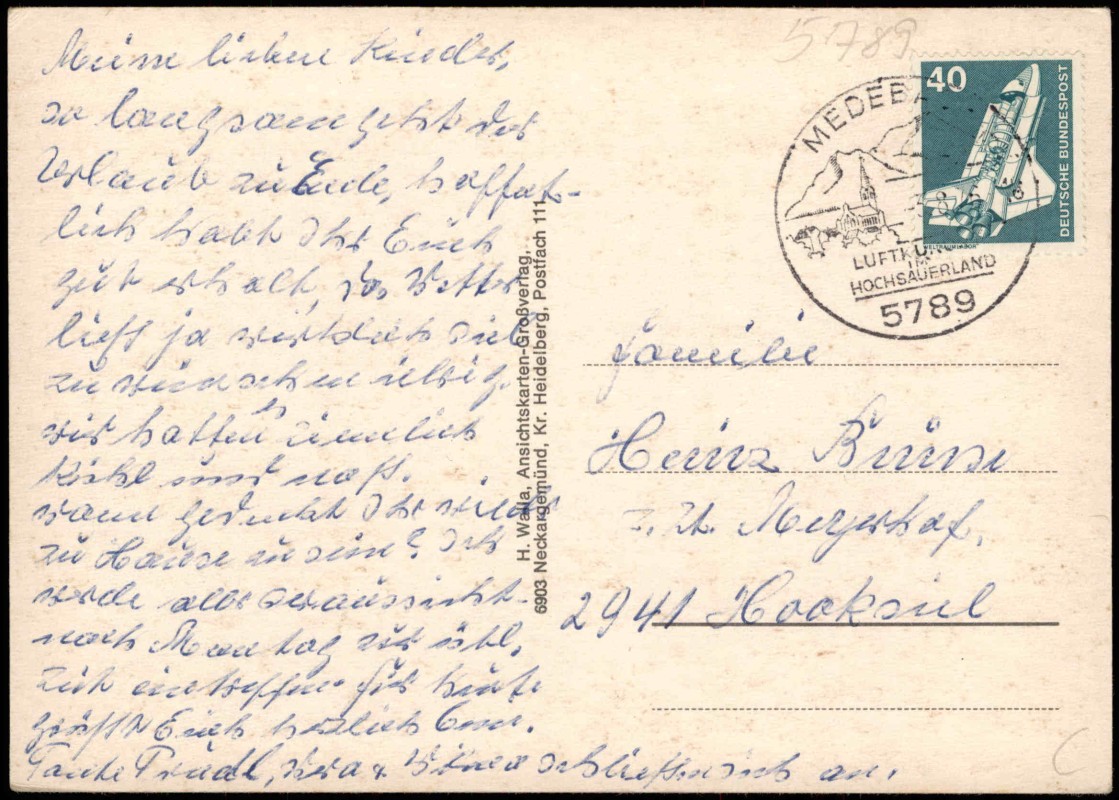 Meine lieben Kinder,
so langsam geht der
Urlaub zu Ende, hoffent-
lich habt Ihr Euch
gut erholt, das Wetter
ließ ja wirklich viel
zu wünschen übrig.
wir hatten es ziemlich
kühl und naß.
wann gedenkt Ihr wieder
zu Hause zu sein? Ich
werde aller voraussicht-
nach Montag zur übl.
Zeit eintreffen für heute
grüßt Euch herzlich Eure
Tante Friedl, schließen sich an.
H. Walla, Ansichtskarten-Großverlag,
6903 Neckargemünd, Kr. Heidelberg, Postfach 111
5789
40
DEUTSCHE BUNDESPOST
WELTRAUMLABOR
MEDEBA
LUFTKUR
IM
HOCHSAUERLAND
5789
Familie
Heinz Bünse
z. Zt. Meyerhof,
2941 Hooksiel
C